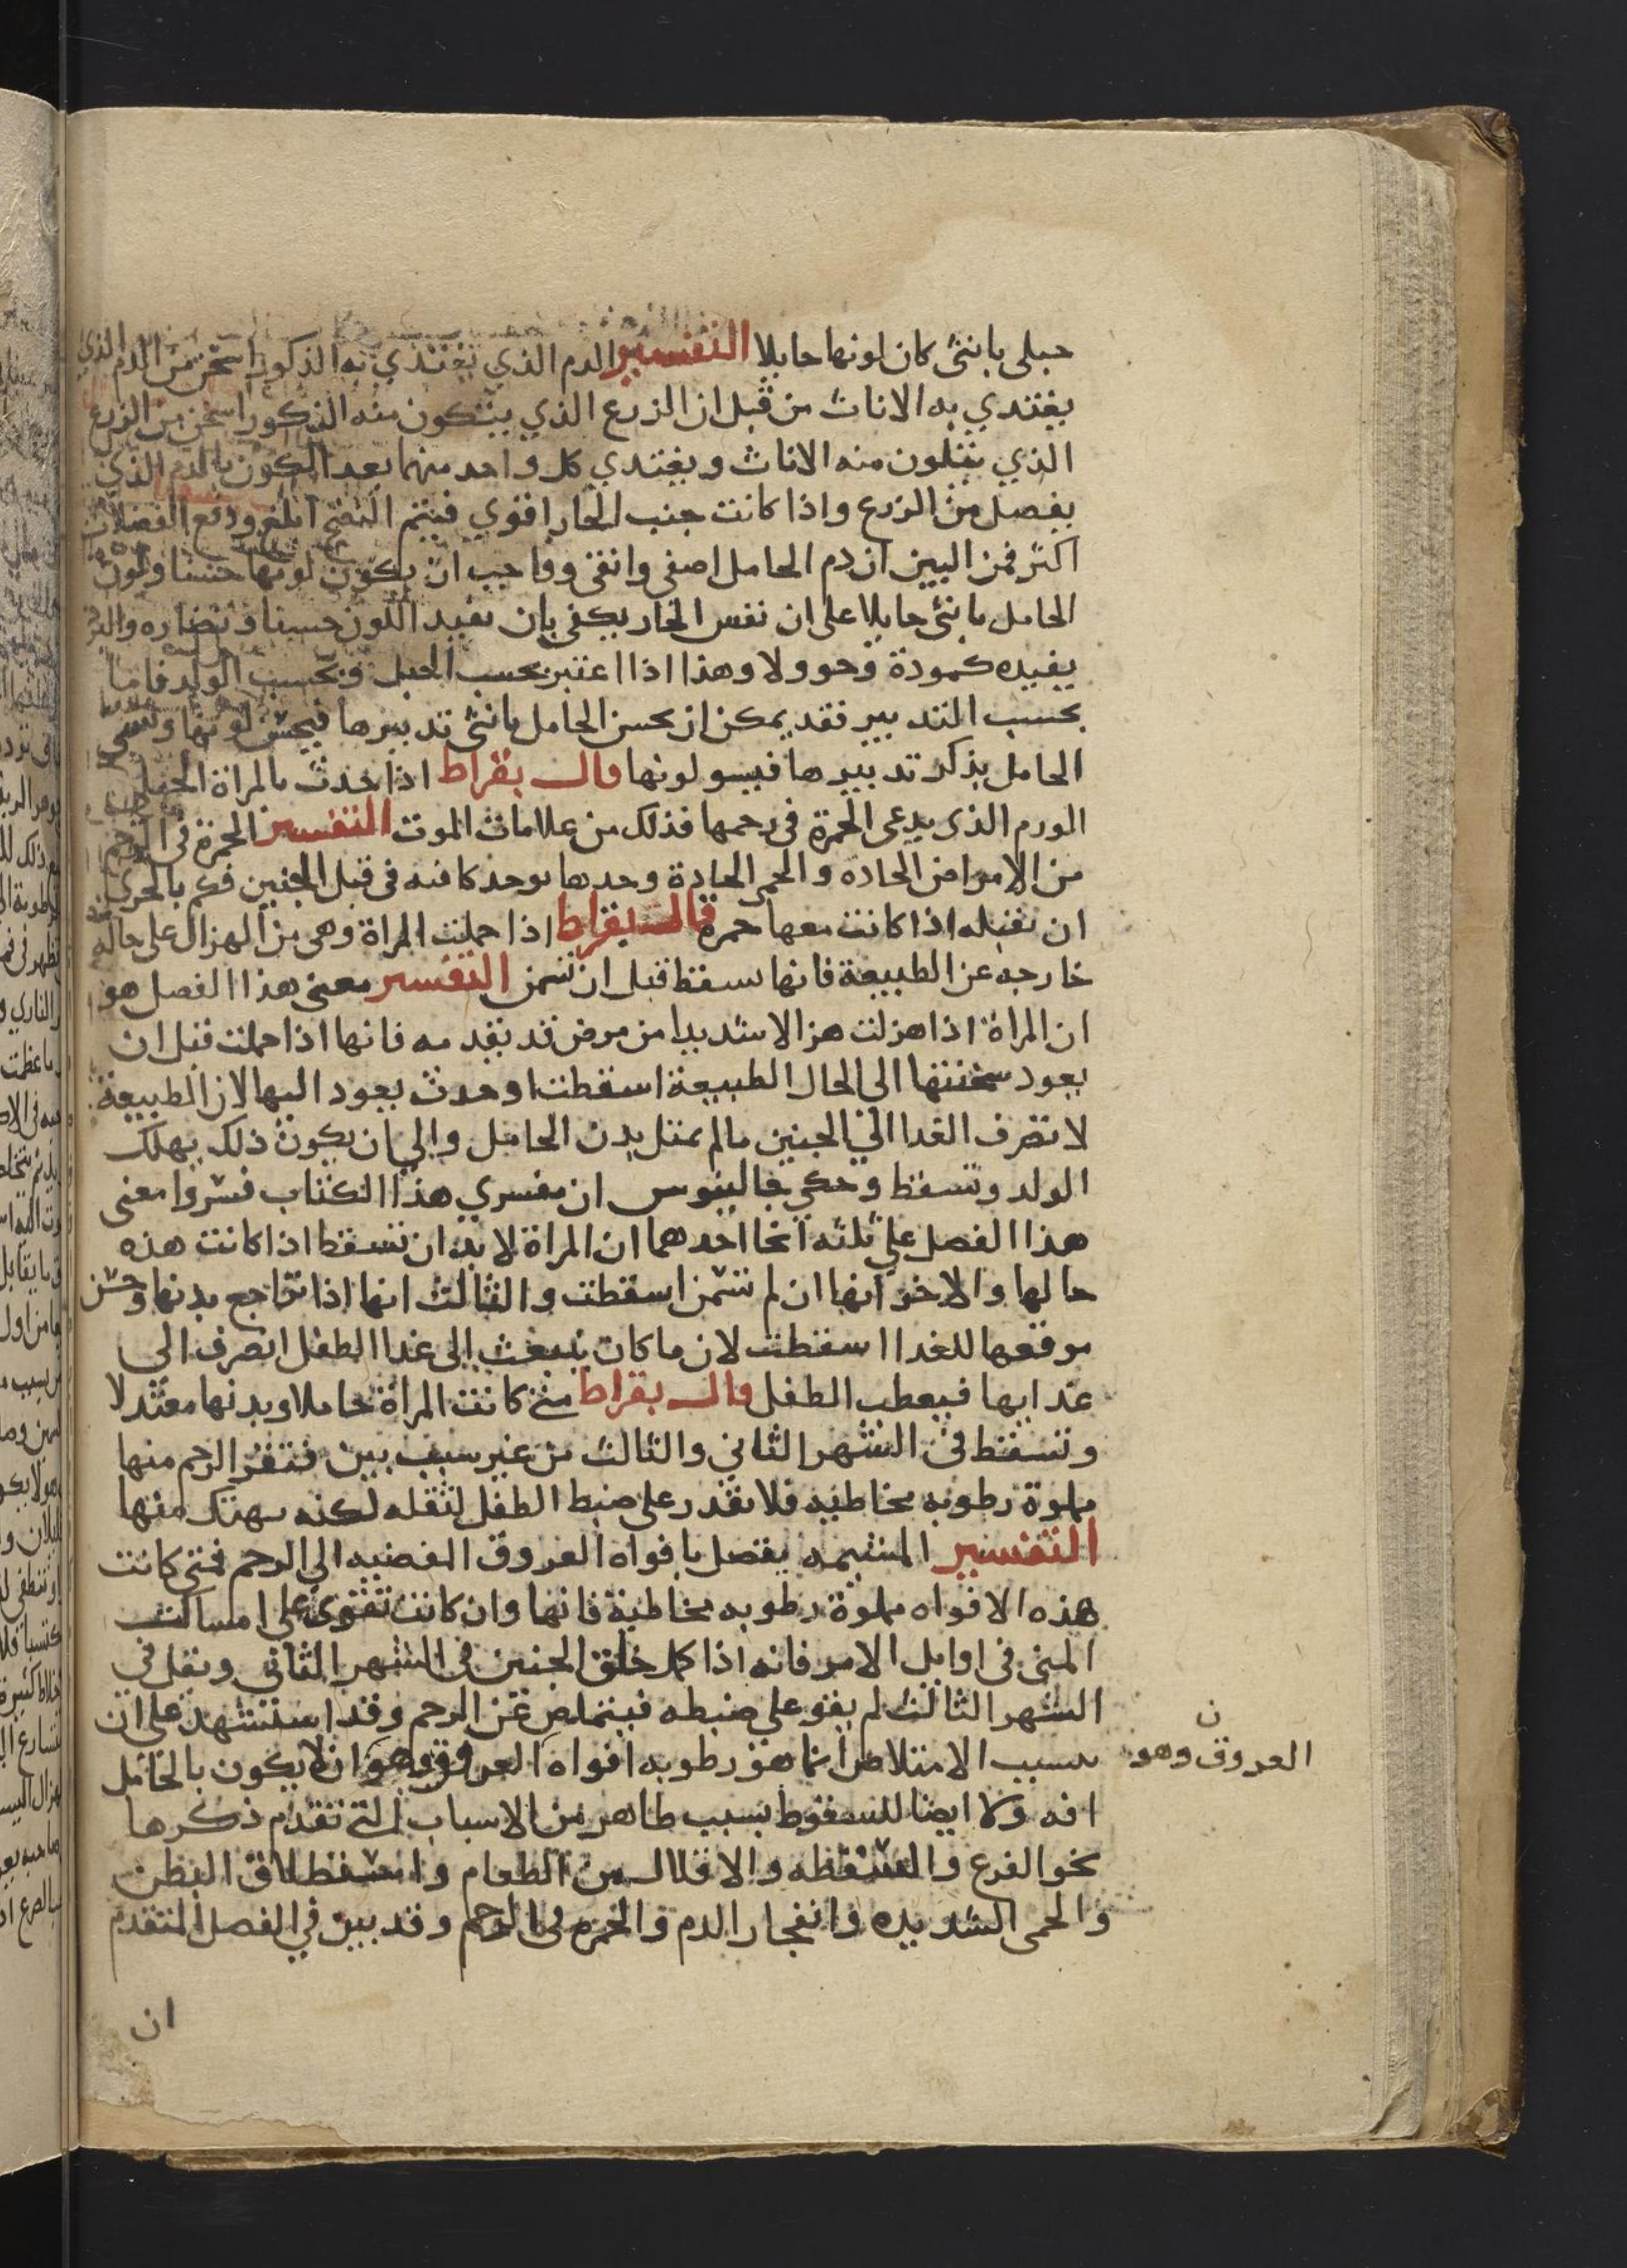 حبلى بانثى كان لونها حايلا التفسير الدم الذي يغتذي به الذكور اسخن من الدم الذي
يغتدي به الاناث من قبل ان الزرع الذي يتكون منه الذكور اسخن من الزرع
الذي يتلون منه الاناث ويغتدي كل واحد منهما بعد الكون بالدم الذي
يفصل من الزرع واذا كانت جنب الحار اقوي فيتم النضج ابلغ ودفع الفضلات
اكثر فمن البين ان دم الحامل اصفى وانقى وواجب ان يكون لونها حسنا ولون
الحامل بانثى حايلا على ان نفس الحار يكفى بان يفيد اللون حسنا ونضاره والبرد
يفيده كمودة وحوولا وهذا اذا اعتبر بحسب الحبل وبحسب الولد فاما
بحسب التدبير فقد يمكن ان يحسن الحامل بانثى تدبيرها فيحسن لونها وتسي
الحامل بذكر تدبيرها فيسو لونها قال بقراط اذا حدث بالمراة الحبلى
الورم الذى يدعى الحمرة فى رحمها فذلك من علامات الموت التفسير الحمرة فى الرحم
من الامراض الحادة والحمى الحادة وحدها توجد كافيه فى قتل الجنين فكم بالحري
ان تقتله اذا كانت معها حمرة قال بقراط اذا حملت المراة وهى من الهزال على حاله
خارجه عن الطبيعة فانها تسقط قبل ان تسمن التفسير معنى هذا الفصل هو
ان المراة اذا هزلت هزالا شديدا من مرض قد تقدمه فانها اذا حملت قبل ان
يعود سخنتها الى الحال الطبيعة اسقطت اوحدث يعود اليها لان الطبيعة
لا تصرف الغدا الي الجنين ما لم يمتل بدن الحامل والي ان يكون ذلك يهلك
الولد وتسقط وحكي جالينوس ان مفسري هذا الكتاب فسروا معنى
هذا الفصل علي ثلثه انحا احدهما ان المراة لا بد ان تسقط اذا كانت هذه
حالها والاخر انها ان لم تسمن اسقطت والثالث انها اذا تراجع بدنها وحسن
موقعها للغدا اسقطت لان ما كان ينبعث الى غدا الطفل انصرف الي
غدايها فيعطب الطفل قال بقراط متى كانت المراة حاملا وبدنها معتدلا
وتسقط فى الشهر الثاني والثالث من غير سبب بين فتقر الرحم منها
مملوة رطوبه مخاطيه فلا تقدر على ضبط الطفل لثقله لكنه يهتك منها
التفسير المشيمه يتصل بافواه العروق المفضيه الي الرحم فمتى كانت
هذه الافواه مملوة رطوبه مخاطية فانها وان كانت تقوى على امساك
المنى فى اوايل الامر فانه اذا كمل خلق الجنين فى الشهر الثاني وثقل في
الشهر الثالث لم يقو على ضبطه فيتملص عن الرحم وقد استشهد على ان
سبب الامتلاص انما هو رطوبه افواه العروق وهو ان لا يكون بالحامل
ن
العروق وهو
افه ولا ايضا للسقوط بسبب طاهر من الاسباب التي تقدم ذكرها
نحو الفزع والسقطه والاقلال من الطعام واستطلاق البطن
والحمى الشديده وانفجار الدم والحمره فى الرحم وقد بين في الفصل المتقدم
ان